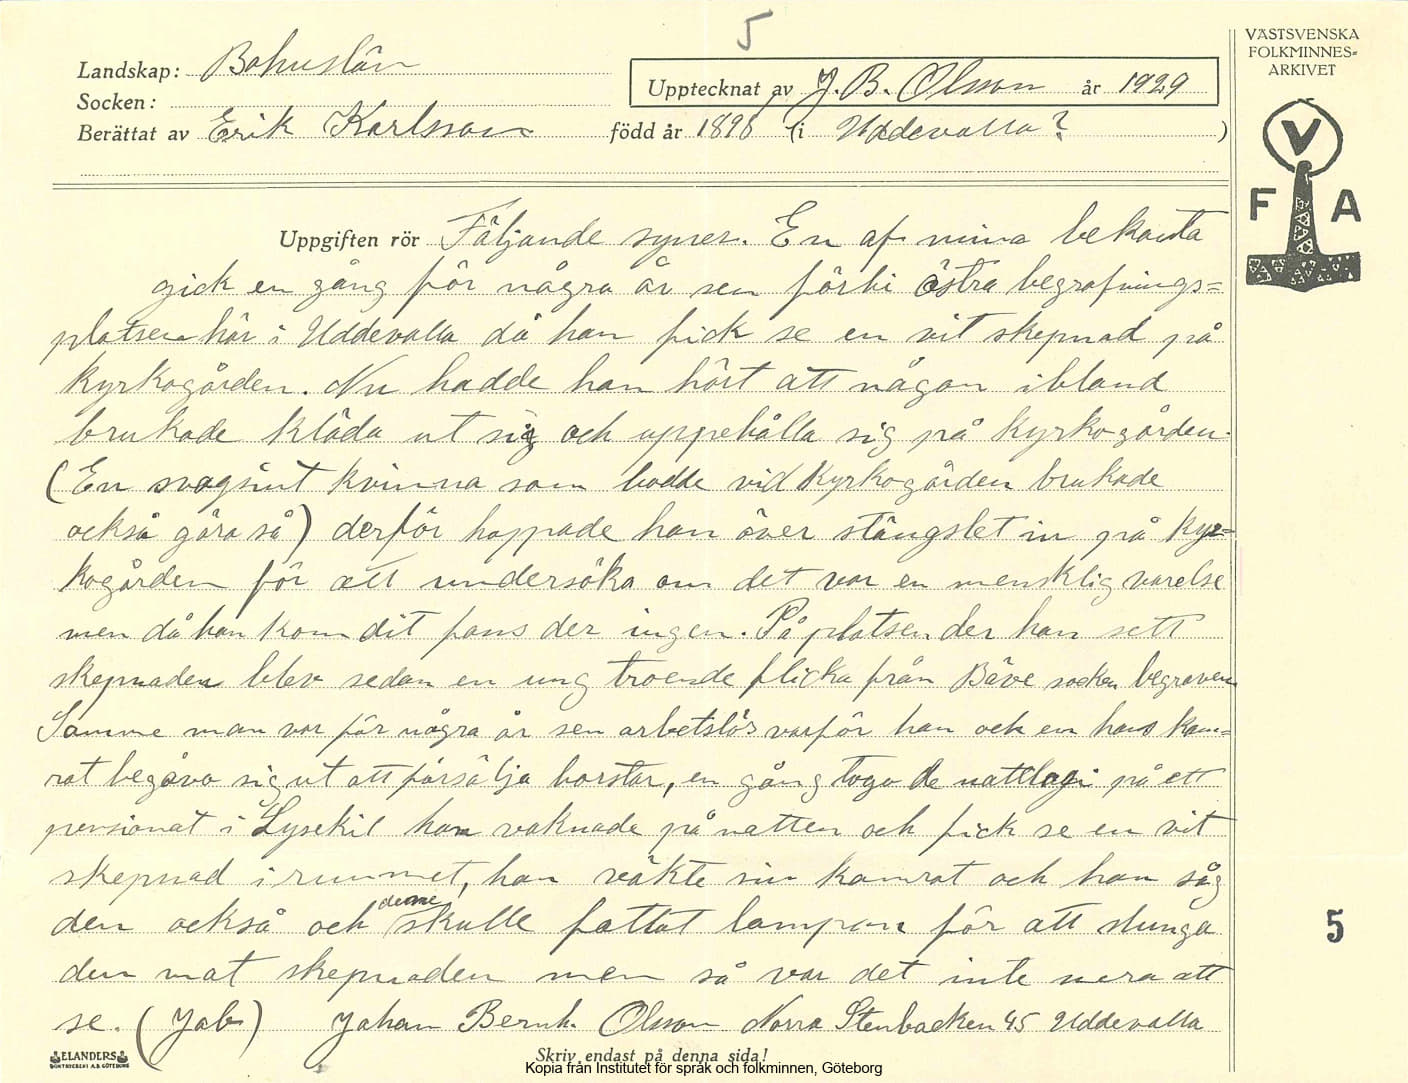 5
VÄSTSVENSKA
FOLKMINNES-
ARKIVET
Landskap: Bohuslän
Upptecknat av J. B. Olsson år 1929
Socken:
Berättat av Erik Karlsson född år 1896 (i Uddevalla? )
V
F A
Uppgiften rör Följande syner. En af mina bekanta
gick en gång för några år sen förbi östra begrafnings=
platsen här i Uddevalla då han fick se en vit skepnad på
kyrkogården. Nu hadde han hört att någon ibland
brukade kläda ut sig och uppehålla sig på kyrkogården.
(En svagsint kvinna som bodde vid kyrkogården brukade
också göra så) derför hoppade han över stängslet in på kyr=
kogården för att undersöka om det var en mensklig varelse
men då han kom dit fans der ingen. På platsen der han sett
skepnaden blev sedan en ung troende flicka från Bäve socken begraven
Samme man var för några år sen arbetslös varför han och en hans kam=
rat begåvo sig ut att försälja borstar, en gång togo de nattlogi på ett
pensionat i Lysekil han vaknade på natten och fick se en vit
skepnad i rummet, han väkte sin kamrat och han såg
den också och denne skulle fattat lampan för att slunga
den mot skepnaden men så var det inte mera att
se. (Job) Johan Bernh. Olsson Norra Stenbacken 45 Uddevalla
ELANDERS
BOKTRYCKERI A.B. GÖTEBORG
Skriv endast på denna sida!
Kopia från Institutet för språk och folkminnen, Göteborg
5